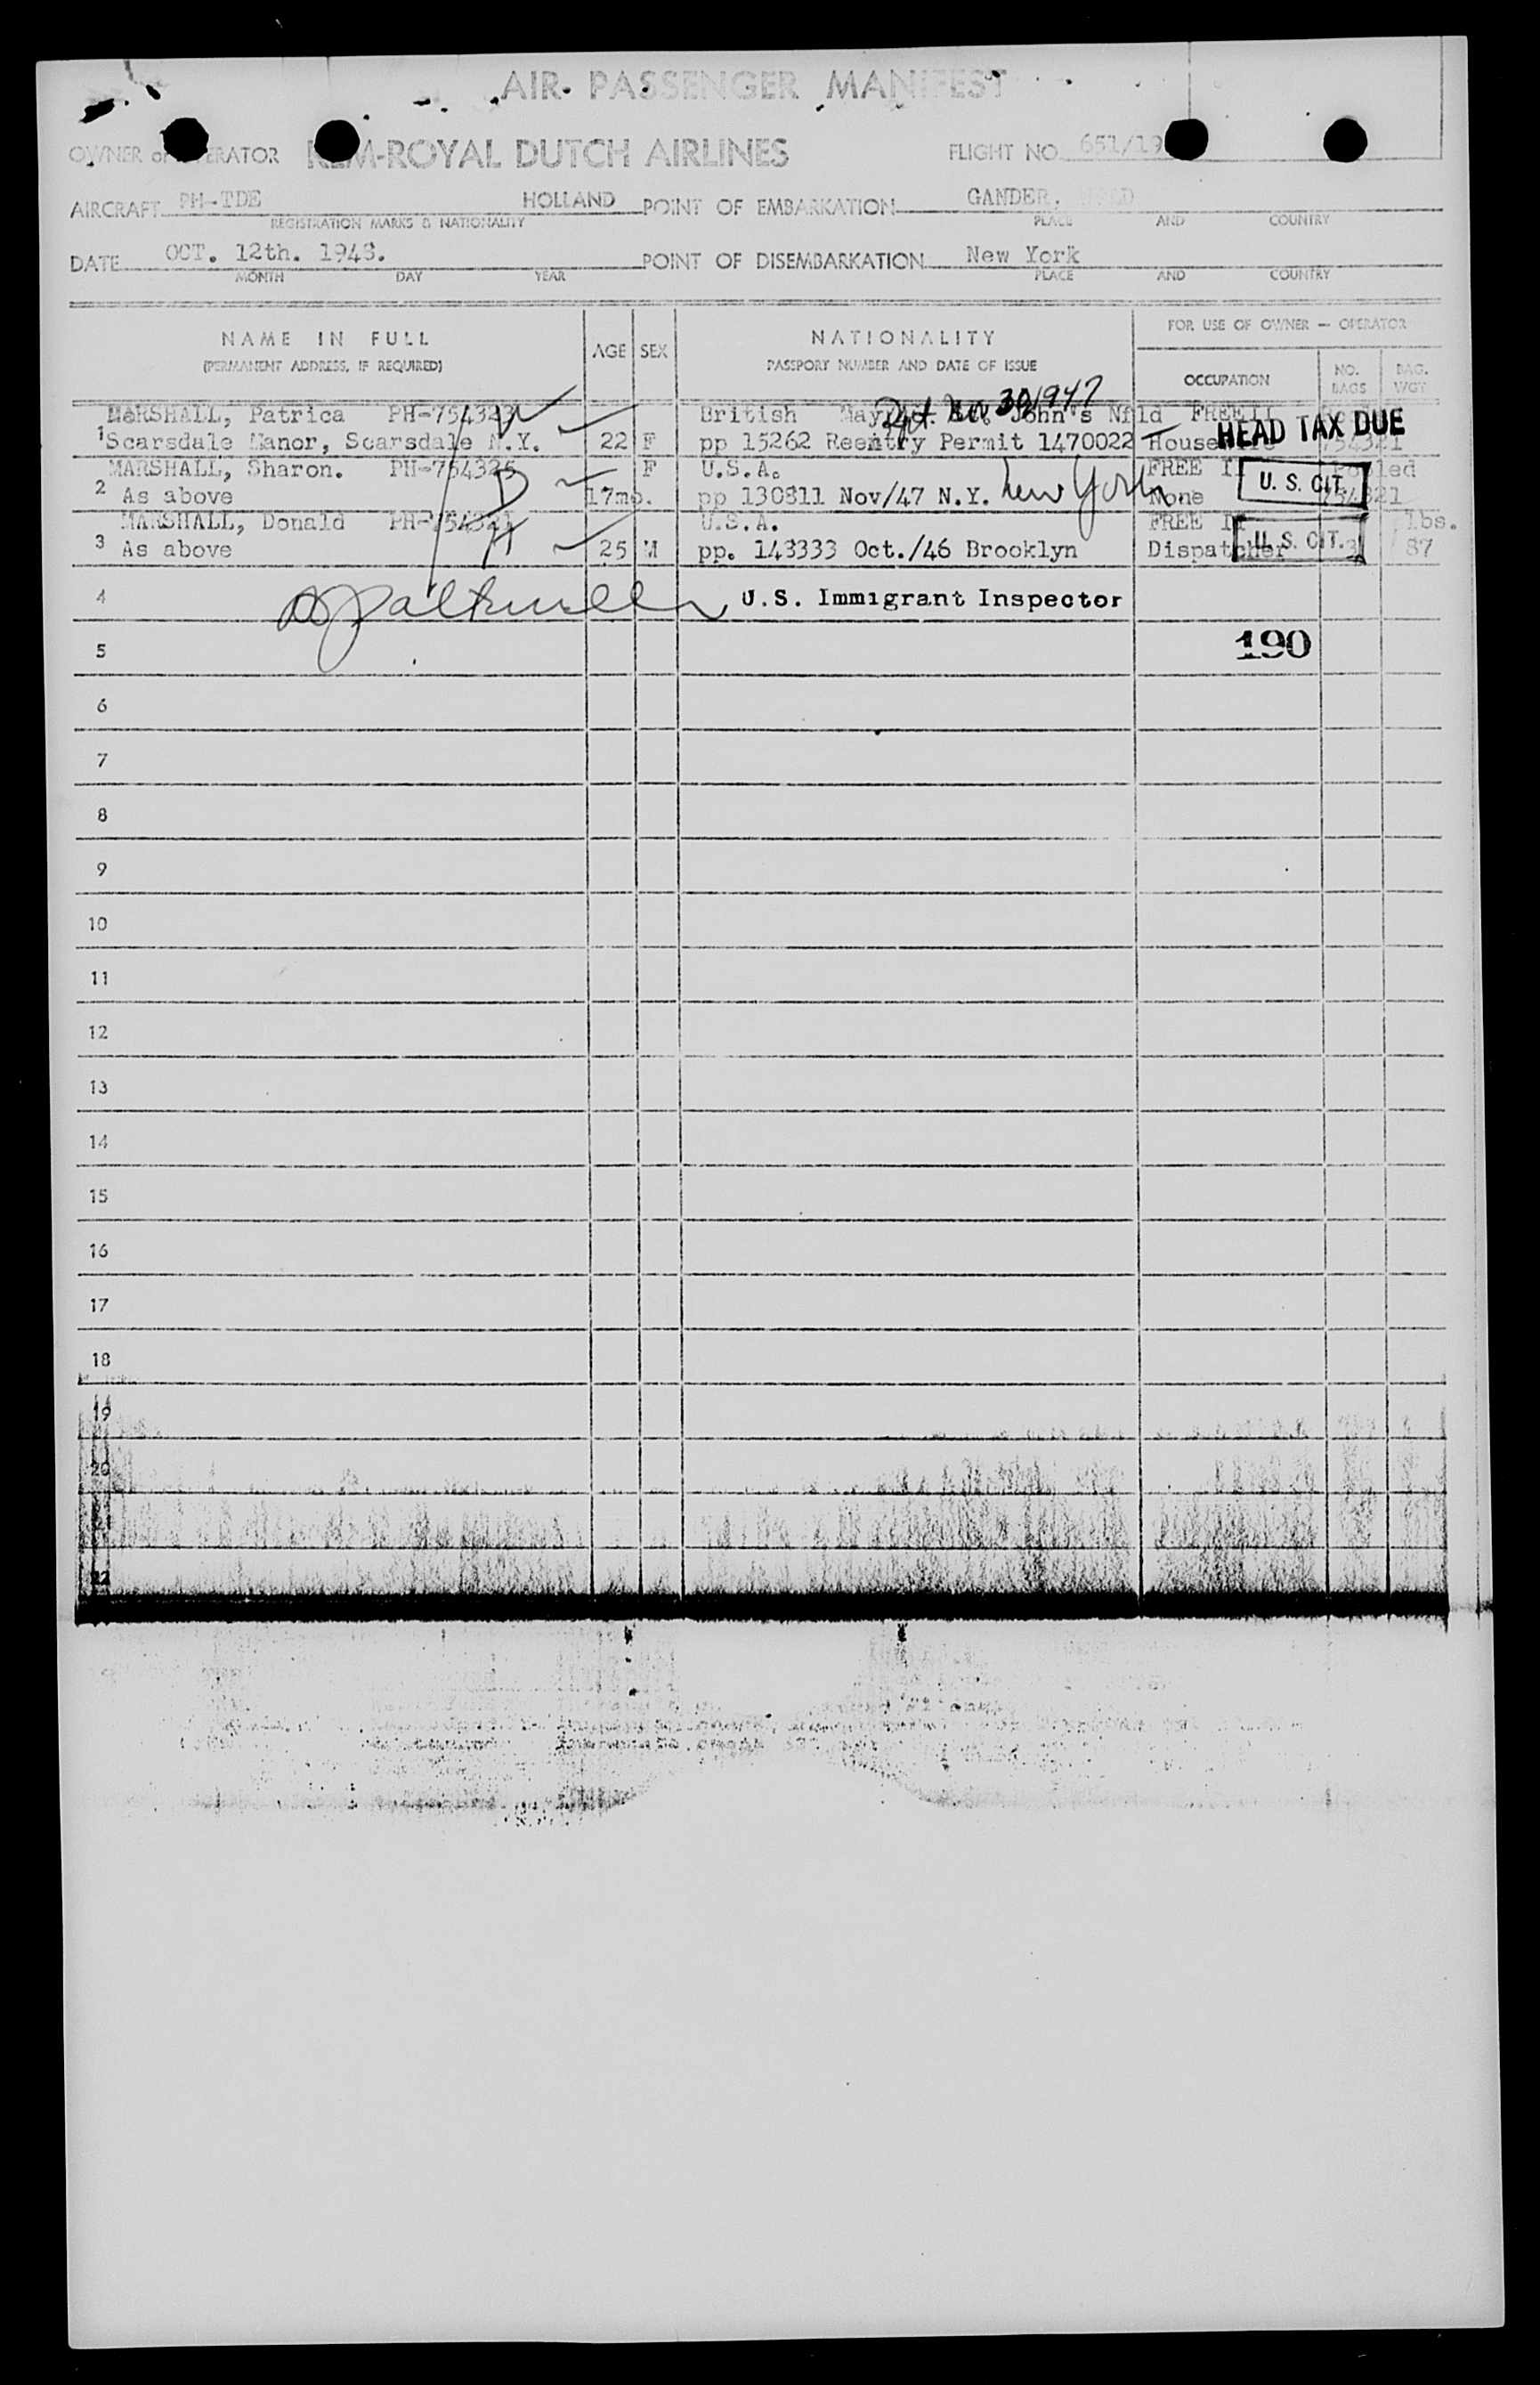 AIR PASSENGER MANIFEST
OWNER or OPERATOR KLM-ROYAL DUTCH AIRLINES FLIGHT NO. 651/19
AIRCRAFT PH-TDE HOLLAND POINT OF EMBARKATION GANDER,
REGISTRATION MARKS & NATIONALITY PLACE AND COUNTRY
DATE OCT. 12th. 1948. POINT OF DISEMBARKATION New York
MONTH DAY YEAR PLACE AND COUNTRY
NAME IN FULL
(PERMANENT ADDRESS, IF REQUIRED)
AGE SEX
NATIONALITY
PASSPORT NUMBER AND DATE OF ISSUE
FOR USE OF OWNER — OPERATOR
OCCUPATION NO. BAGS BAG. WGT.
30/947
MARSHALL, Patrica PH-754323 British John's Nfld FREE
HEAD TAX DUE
1 Scarsdale Manor, Scarsdale N.Y. 22 F pp 15262 Reentry Permit 1470022 Housewife 754321
MARSHALL, Sharon. PH-754325 F U.S.A. FREE Pooled
2 As above 17mo. pp 130811 Nov/47 N.Y. New York None U. S. CIT. 754321
MARSHALL, Donald PH-754321 U.S.A. FREE lbs.
3 As above 25 M pp. 143333 Oct./46 Brooklyn Dispatcher U. S. CIT. 3 87
4 U.S. Immigrant Inspector
5 190
6
7
8
9
10
11
12
13
14
15
16
17
18
19
20
21
22